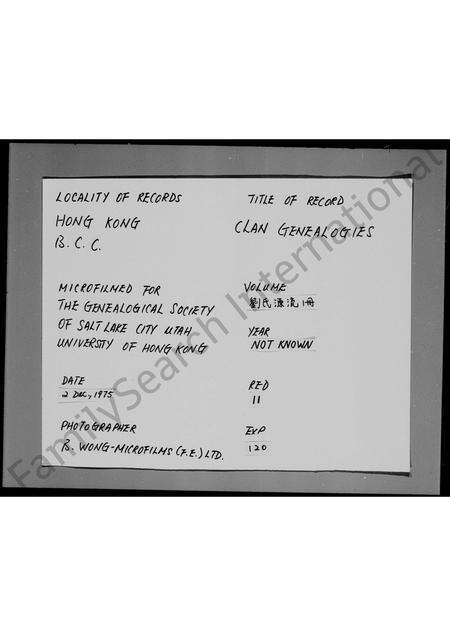 LOCALITY OF RECORDS
HONG KONG
B. C. C.
TITLE OF RECORD
CLAN GENEALOGIES
MICROFILMED FOR
THE GENEALOGICAL SOCIETY
OF SALT LAKE CITY UTAH
UNIVERSTY OF HONG KONG
VOLUME
劉氏源流冊
YEAR
NOT KNOWN
DATE
2 DEC, 1975
RED
11
PHOTOGRAPHER
B. WONG-MICROFILMS (F.E.) LTD.
EXP
120
FamilySearch International